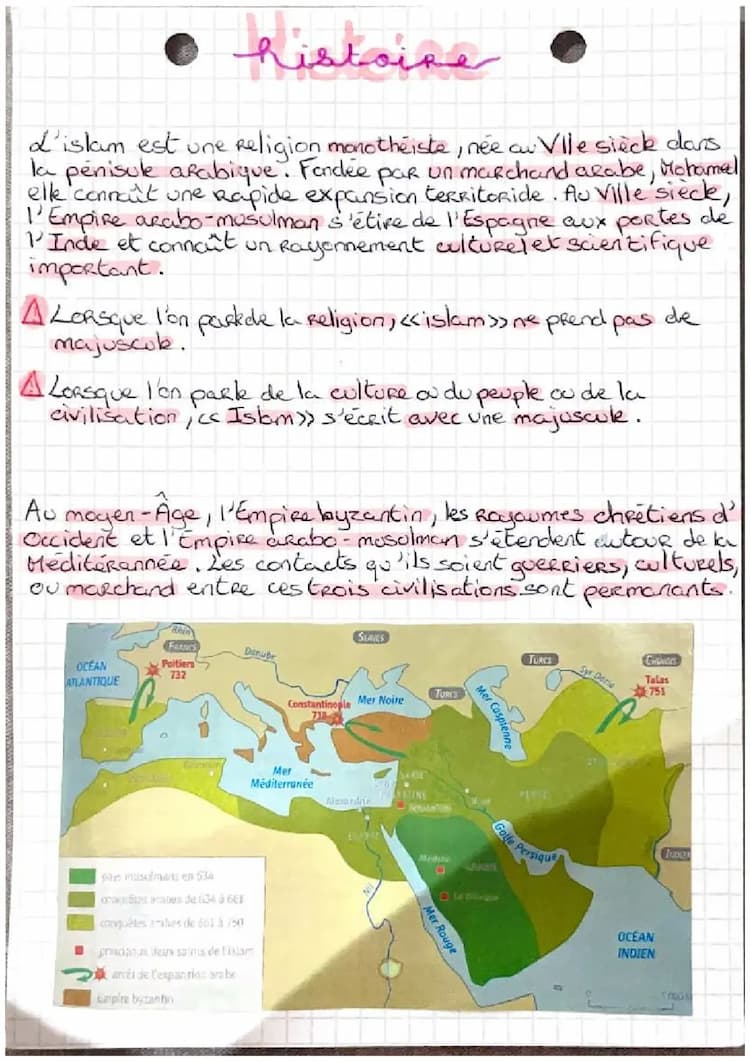 Histoire
histoire
L'islam est une religion monothéiste, née au VIIe siècle dans
la pénisule arabique. Fondée par un marchand arabe, Mohamed
elle connaît une rapide expansion territoriale. Au VIIIe siècle,
l'Empire arabo-musulman s'étire de l'Espagne aux portes de
l'Inde et connaît un rayonnement culturel et scientifique
important.
Lorsque l'on parle de la religion, «islam» ne prend pas de
majuscule.
Lorsque l'on parle de la culture ou du peuple ou de la
civilisation, «Islam» s'écrit avec une majuscule.
Au moyen-Âge, l'Empire byzantin, les Royaumes chrétiens d'
Occident et l'Empire arabo-musulman s'étendent autour de la
Méditérannée. Les contacts qu'ils soient guerriers, culturels,
ou marchand entre ces trois civilisations sont permanants.
Rhin
FRANCS
SLAVES
Danube
TURCS
Syr-Daria
CHINOIS
OCÉAN
ATLANTIQUE
Poitiers
732
Talas
751
Constantinople
718
Mer Noire
TURCS
Mer Caspienne
Mer
Méditerranée
SYRIE
Alexandrie
PERSE
ÉGYPTE
Golfe Persique
Médine
La Mecque
Nil
Mer Rouge
OCÉAN
INDIEN
pays musulmans en 634
conquêtes arabes de 634 à 661
conquêtes arabes de 661 à 750
principaux lieux saints de l'islam
arrêt de l'expansion arabe
Empire byzantin